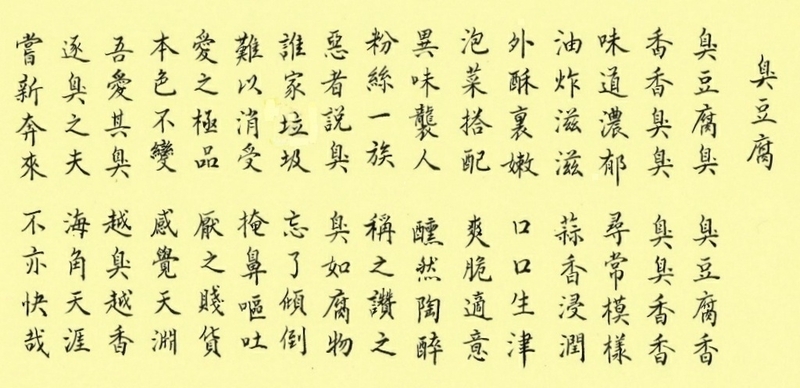 臭豆腐
臭豆腐臭 臭豆腐香
香香臭臭 臭臭香香
味道濃郁 尋常模樣
油炸滋滋 蒜香浸潤
外酥裏嫩 口口生津
泡菜搭配 爽脆適意
異味襲人 醺然陶醉
粉絲一族 稱之讚之
惡者說臭 臭如腐物
誰家垃圾 忘了傾倒
難以消受 掩鼻嘔吐
愛之極品 厭之賤貨
本色不變 感覺天淵
吾愛其臭 越臭越香
逐臭之夫 海角天涯
嘗新奔來 不亦快哉